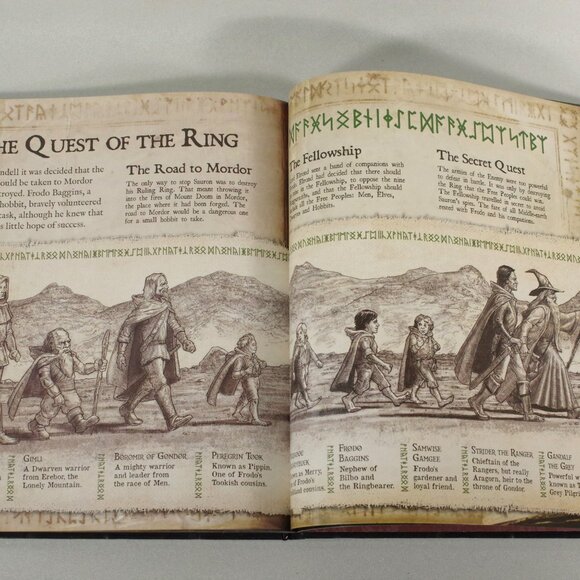 HE QUEST OF THE RING
ndell it was decided that the
ould be taken to Mordor
royed. Frodo Baggins, a
hobbit, bravely volunteered
task, although he knew that
s little hope of success.
The Road to Mordor
The only way to stop Sauron was to destroy
his Ruling Ring. That meant throwing it
into the fires of Mount Doom in Mordor,
the place where it had been forged. The
road to Mordor would be a dangerous one
for a small hobbit to take.
The Fellowship
Elrond sent a band of companions with
Frodo. Elrond had decided that there should
be nine in the Fellowship, to oppose the nine
and that the Fellowship should
the Free Peoples: Men, Elves,
and Hobbits.
The Secret Quest
The armies of the Enemy were too powerful
to defeat in battle. It was only by destroying
the Ring that the Free Peoples could win.
The Fellowship travelled in secret to avoid
Sauron's spies. The fate of all Middle-earth
rested with Frodo and his companions.
GIMLI
A Dwarven warrior
from Erebor, the
Lonely Mountain.
BOROMIR OF GONDOR
A mighty warrior
and leader from
the race of Men.
PEREGRIN TOOK
Known as Pippin.
One of Frodo's
Tookish cousins.
as Merry,
Frodo's
cousins.
FRODO
BAGGINS
Nephew of
Bilbo and
the Ringbearer.
SAMWISE
GAMGEE
Frodo's
gardener and
loyal friend.
STRIDER THE RANGER
Chieftain of the
Rangers, but really
Aragorn, heir to the
throne of Gondor.
GANDALF
THE GREY
Powerful w
known as T
Grey Pilgri